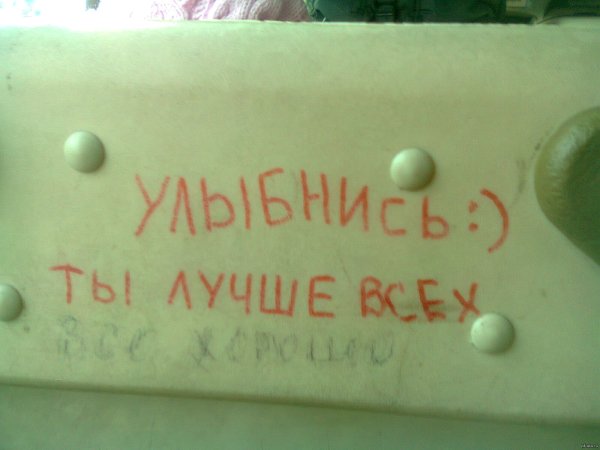 УЛЫБНИСЬ:)
ТЫ ЛУЧШЕ ВСЕХ
ВСЕ ХОРОШО